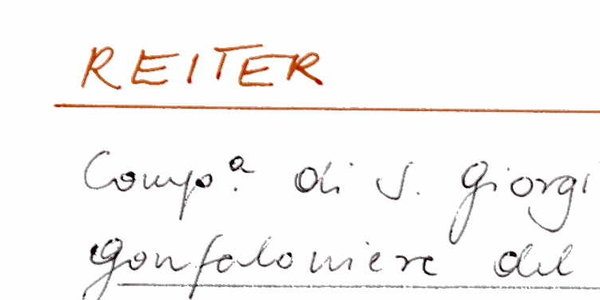 REITER
Comp.ª di S. Giorgi
gonfaloniere del